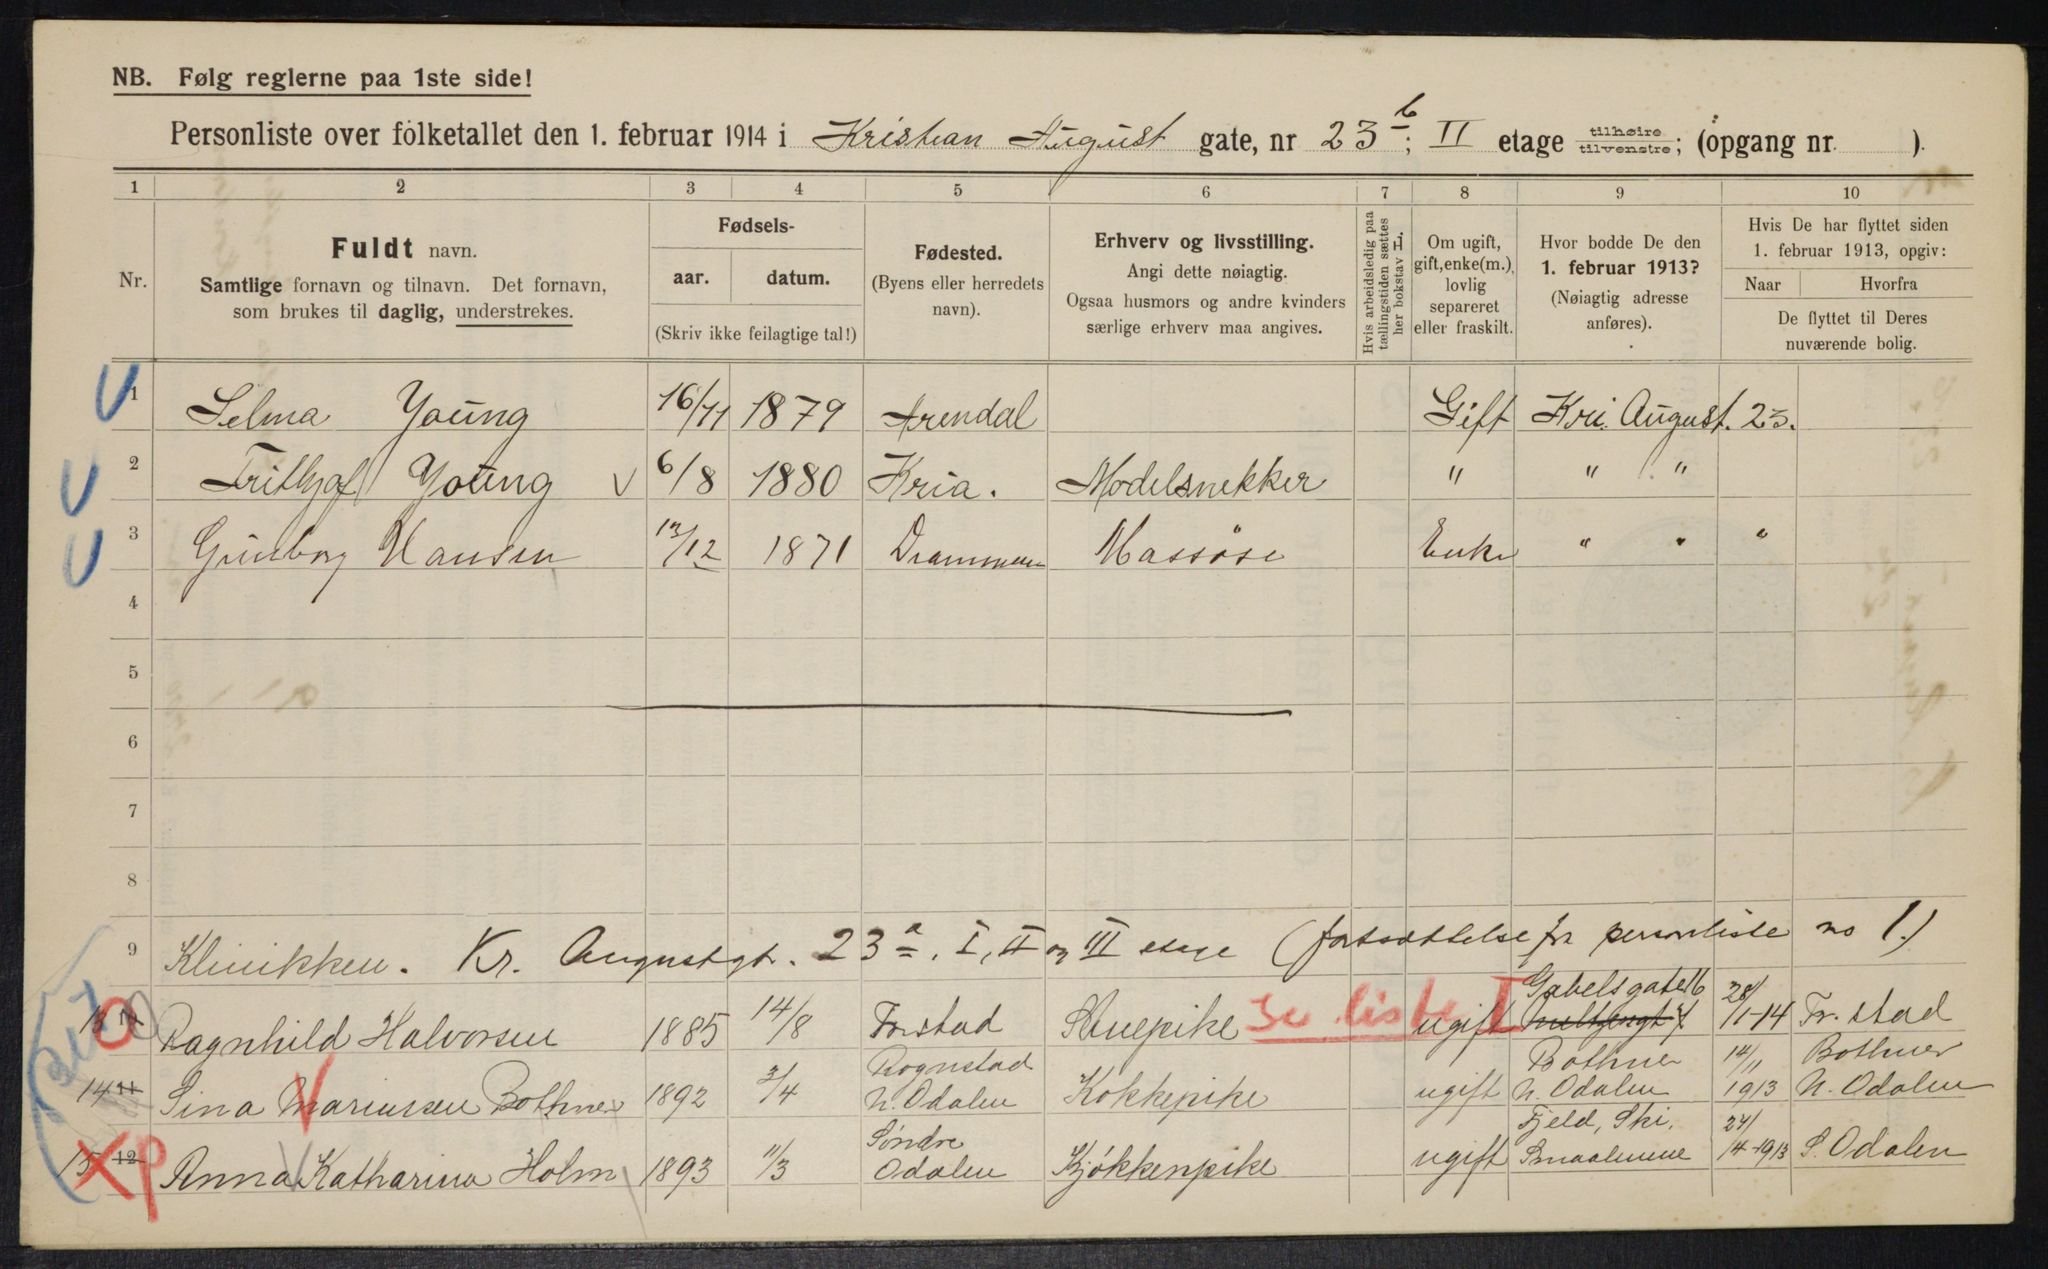 NB. Følg reglerne paa 1ste side!
Personliste over folketallet den 1. februar 1914 i Kristian August gate, nr 23 b; II etage tilhøire tilvenstre; (opgang nr. ).
1 2 3 4 5 6 7 8 9 10
Nr.
Fuldt navn.
Samtlige fornavn og tilnavn. Det fornavn,
som brukes til daglig, understrekes.
Fødsels-
aar. datum.
(Skriv ikke feilagtige tal!)
Fødested.
(Byens eller herredets
navn).
Erhverv og livsstilling.
Angi dette nøiagtig.
Ogsaa husmors og andre kvinders
særlige erhverv maa angives.
Hvis arbeidsledig paa
tællingstiden sættes
her bokstav L.
Om ugift,
gift, enke(m.),
lovlig
separeret
eller fraskilt.
Hvor bodde De den
1. februar 1913?
(Nøiagtig adresse
anføres).
Hvis De har flyttet siden
1. februar 1913, opgiv:
Naar Hvorfra
De flyttet til Deres
nuværende bolig.
1 Selma Young 16/11 1879 Arendal Gift Kri. August. 23.
2 Frithjof Young 6/8 1880 Kria. Modelsnekker " " "
3 Gunborg Hansen 12/12 1871 Drammen Massøse Enke " " "
4
5
6
7
8
9 Klinikken. Kr. Augustgt. 23 a, I, II og III etage (fortsættelse fra personliste no 1.)
13 Ragnhild Halvorsen 1885 14/8 Frstad Stuepike Se liste I ugift Gabelsgate 16 28/1-14 Fr.stad
14 11 Sina Mariussen Bothner 1892 2/4 Rognstad N. Odalen Kokkepike ugift Bothner N. Odalen 14/11 1913 Bothner N. Odalen
15 12 Anna Katharina Holm 1893 11/3 Søndre Odalen Kjøkkenpike ugift Fjeld, Ski, Smaalenene 24/14-1913 S. Odalen